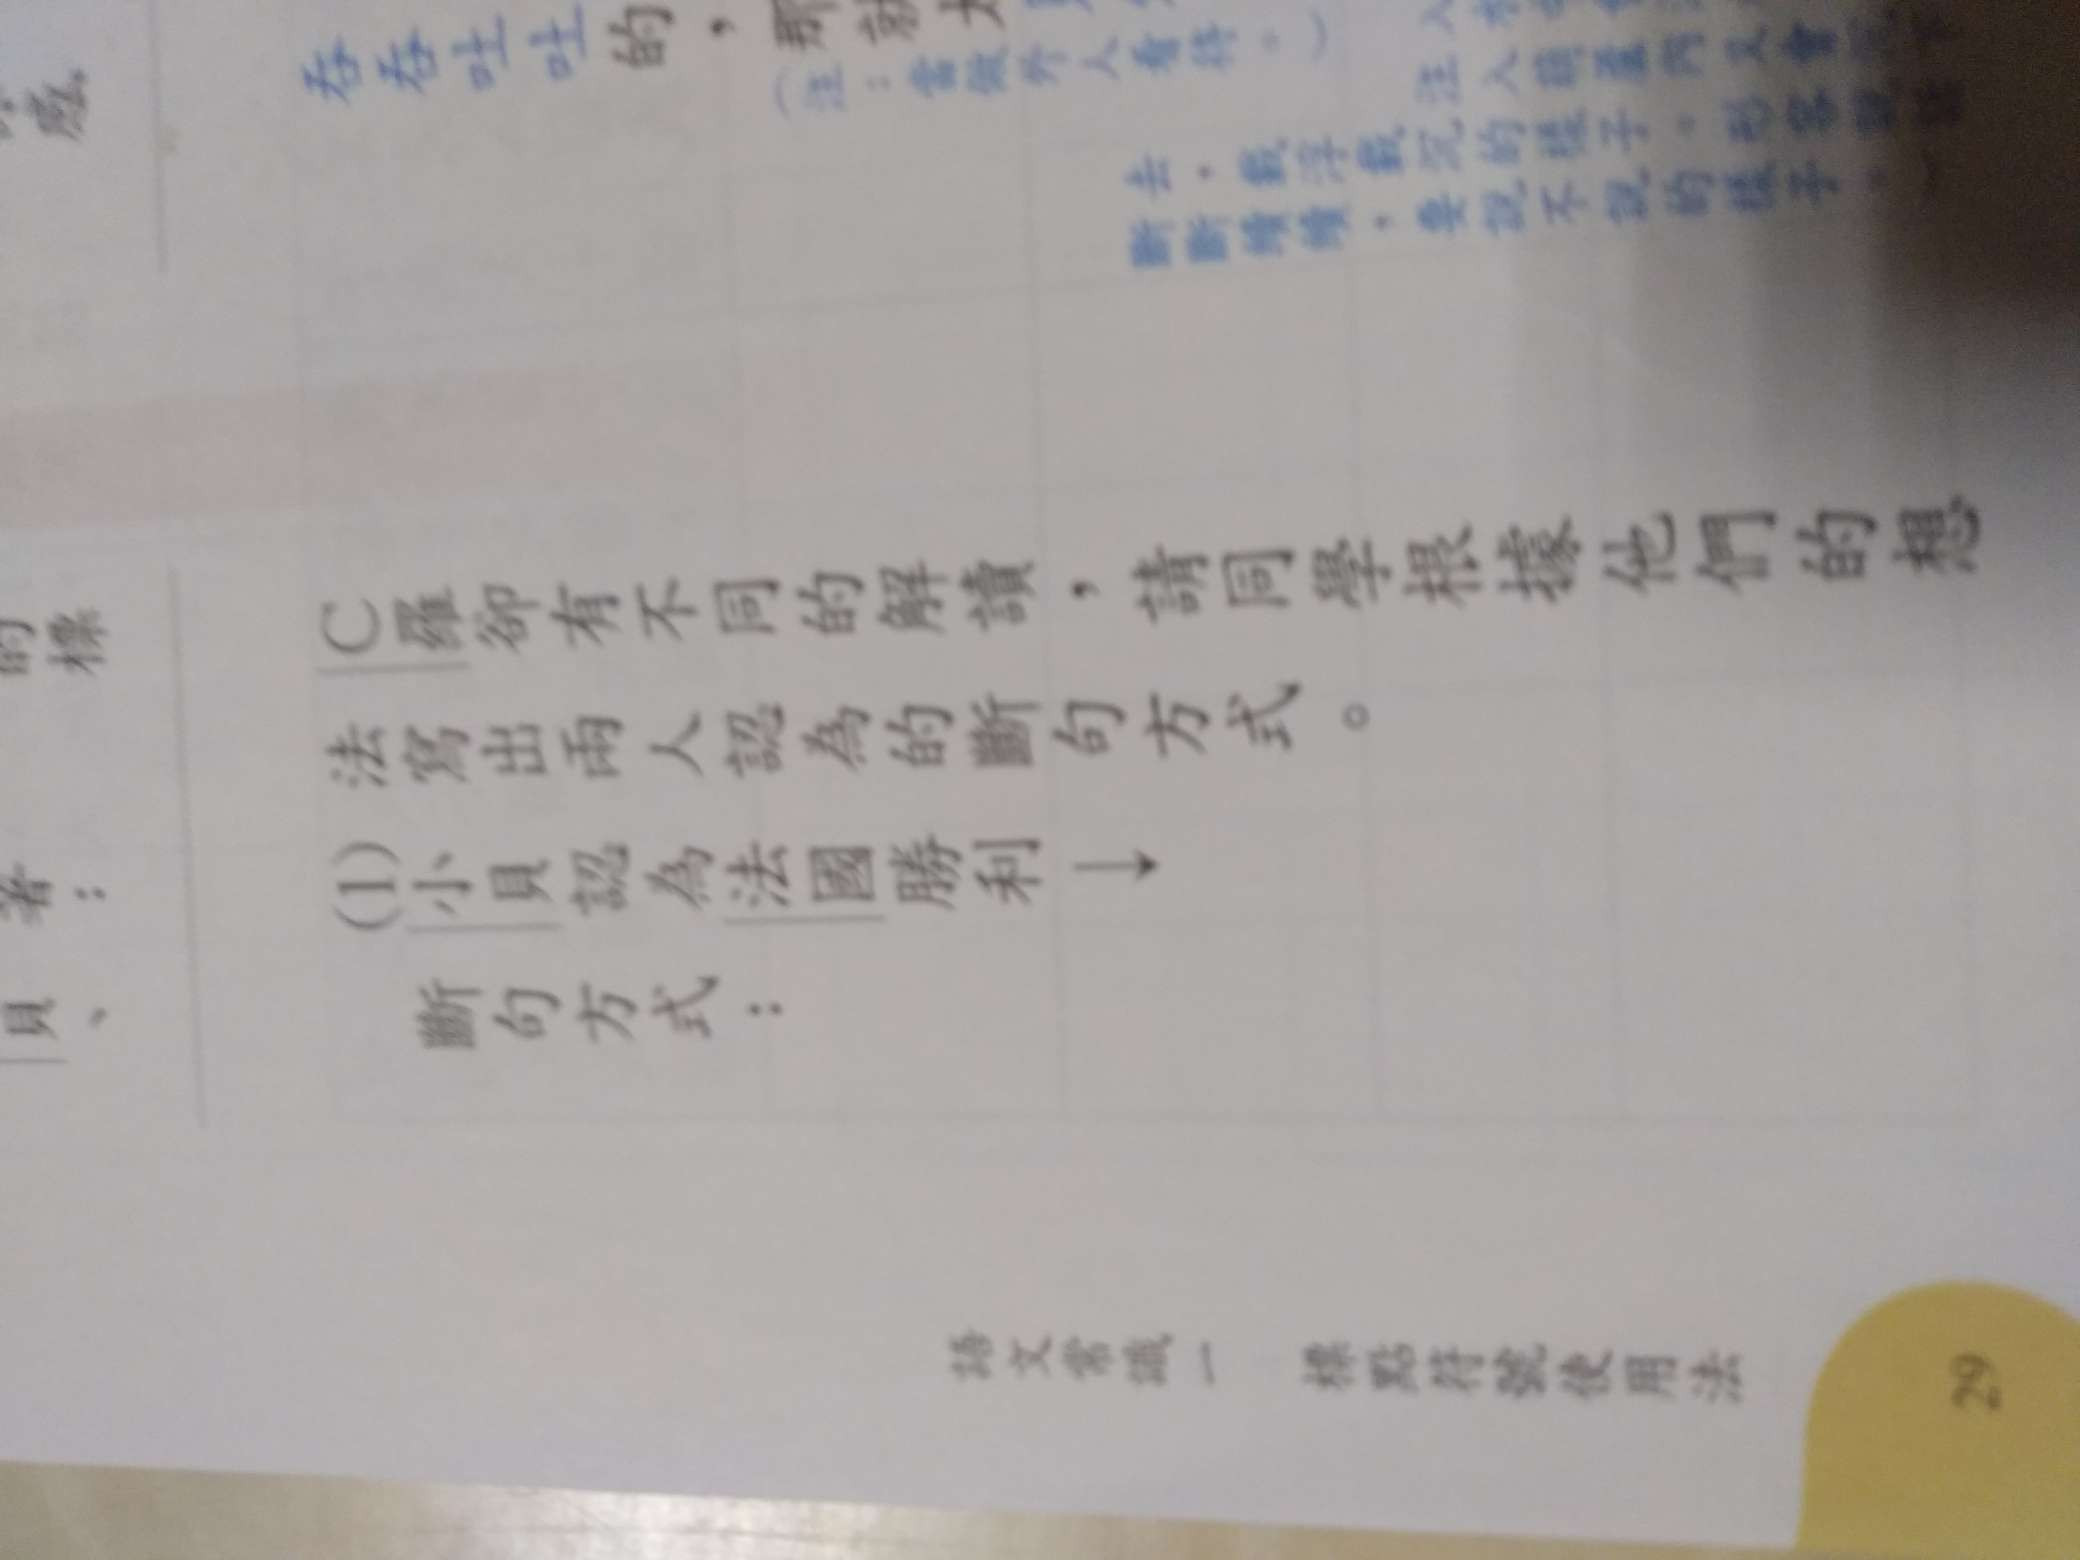 吞吞吐吐的，那就大
（注：當做外人看待。）
去，載浮載沉的樣子。形容
斷斷續續，要說不說的樣子。）
C羅卻有不同的解讀，請同學根據他們的想
法寫出兩人認為的斷句方式。
(1)小貝認為法國勝利→
斷句方式：
的標
著：
貝、
語文常識一　標點符號使用法
29